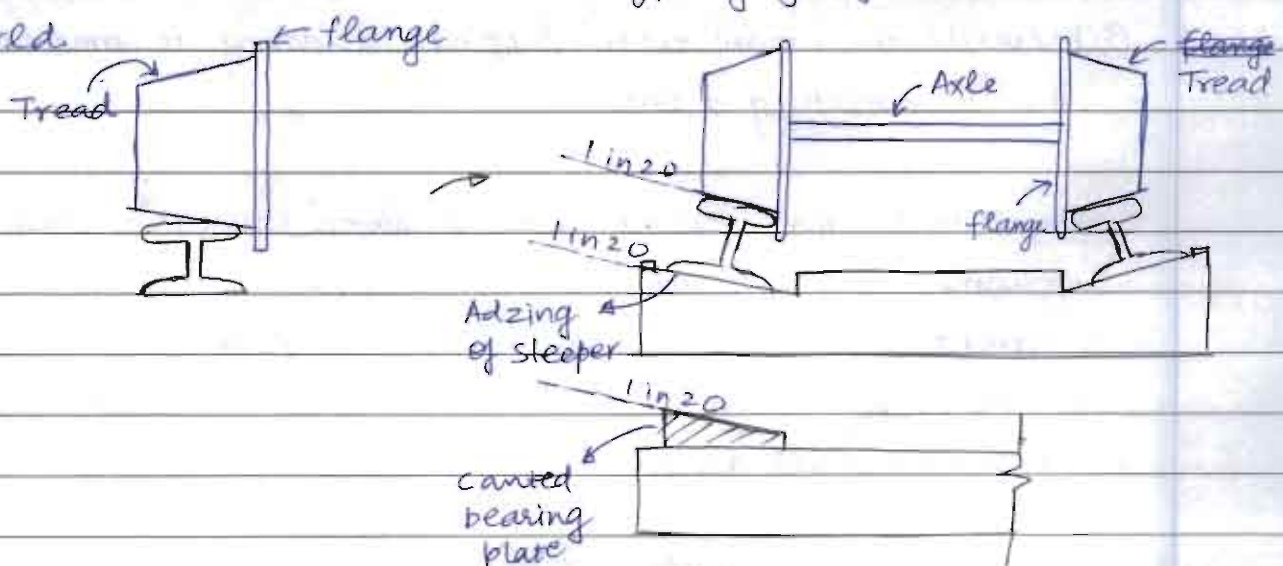 eld.
flange
Tread
flange
Tread
Axle
1 in 20
flange
1 in 20
Adzing
of sleeper
1 in 20
canted
bearing
plate